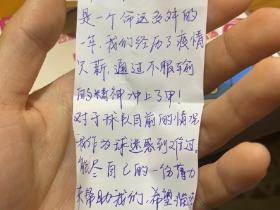 是一个命运多舛的
一年,我们经历了疫情
欠薪,通过不服输
的精神冲上了甲!
对于球队目前的情况
我作为球迷感到难过,
能尽自己的一份薄力
来帮助我们,希望